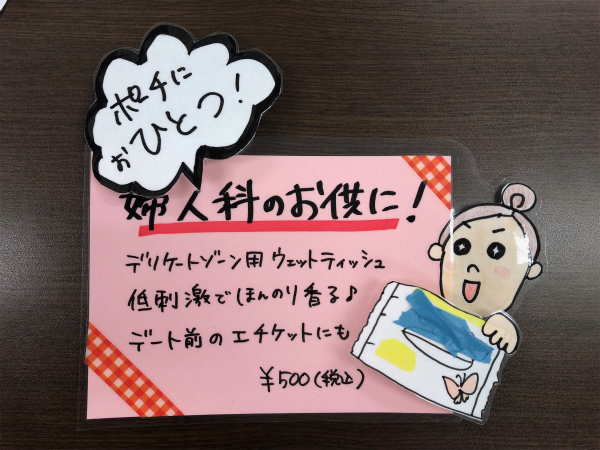 ポチに
おひとつ!
婦人科のお供に!
デリケートゾーン用 ウェットティッシュ
低刺激でほんのり香る♪
デート前のエチケットにも
¥500(税込)